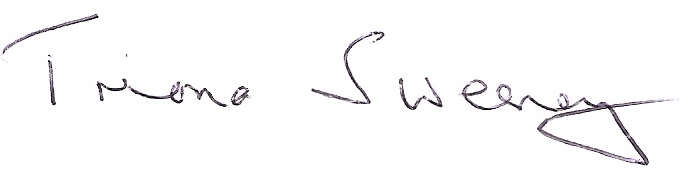 Triona Sweeney